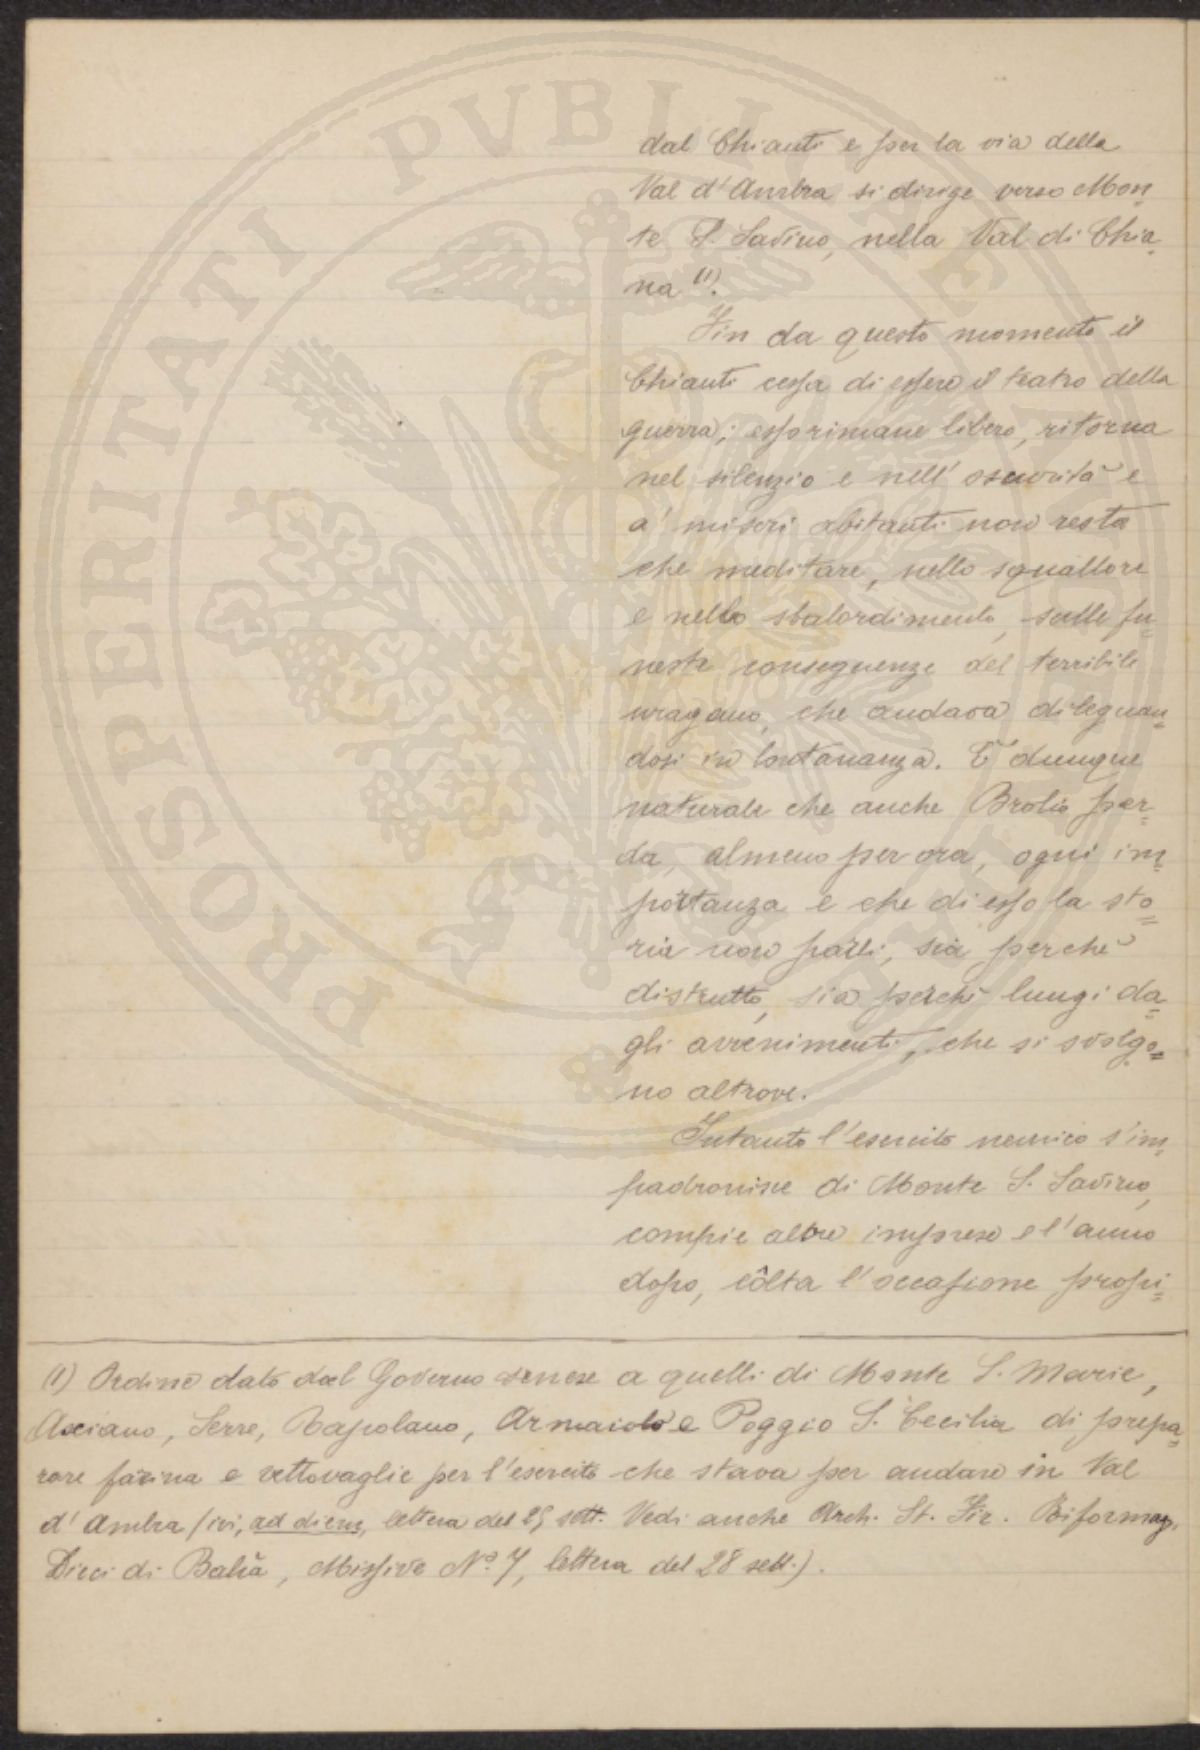 dal Chianti e per la via della
Val d'Ambra si dirige verso Mon=
te S. Savino, nella Val di Chia=
na (1).
Fin da questo momento il
Chianti cessa di essere il teatro della
guerra; esso rimane libero, ritorna
nel silenzio e nell'oscurità e
a' miseri abitanti non resta
che meditare, nello squallore
e nello sbalordimento, sulle fu=
neste conseguenze del terribile
uragano, che andava dileguan=
dosi in lontananza. È dunque
naturale che anche Brolio per=
da, almeno per ora, ogni im=
portanza e che di esso la sto=
ria non parli, sia perchè
distrutto, sia perchè lungi da=
gli avvenimenti, che si svolgo=
no altrove.
Intanto l'esercito nemico s'im=
padronisce di Monte S. Savino,
compie altre imprese e l'anno
dopo, côlta l'occasione propi=
(1) Ordine dato dal Governo senese a quelli di Monte S. Marie,
Asciano, Serre, Rapolano, Armaiolo e Poggio S. Cecilia di prepa=
rare farina e vettovaglie per l'esercito che stava per andare in Val
d'Ambra (ivi, ad diem, lettera del 25 sett. Vedi anche Arch. St. Fir. Riformag.
Dieci di Balìa, Missive N.º 7, lettera del 28 sett.).
PROSPERITATI PVBLICAE